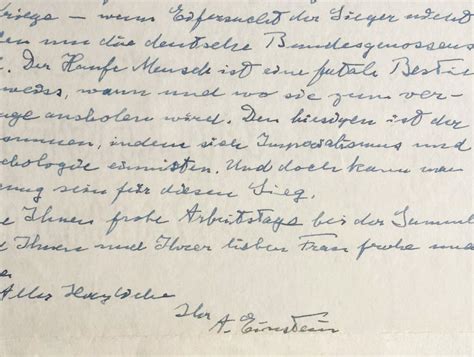 kriege – wenn Eifersucht der Sieger nicht
um die deutsche Bundesgenossens
. Der Haufe Mensch ist eine fatale Bestie
weiss, wann und wo sie zum ver-
ausholen wird. Den hiesigen ist der
kommen, indem sich Imperialismus und
chologie einnisten. Und doch kann man
nug sein für diesen Sieg.
e Ihnen frohe Arbeitstage bei der Samml
d Ihnen und Ihrer lieben Frau frohe
Alles Herzliche
Ihr
A. Einstein